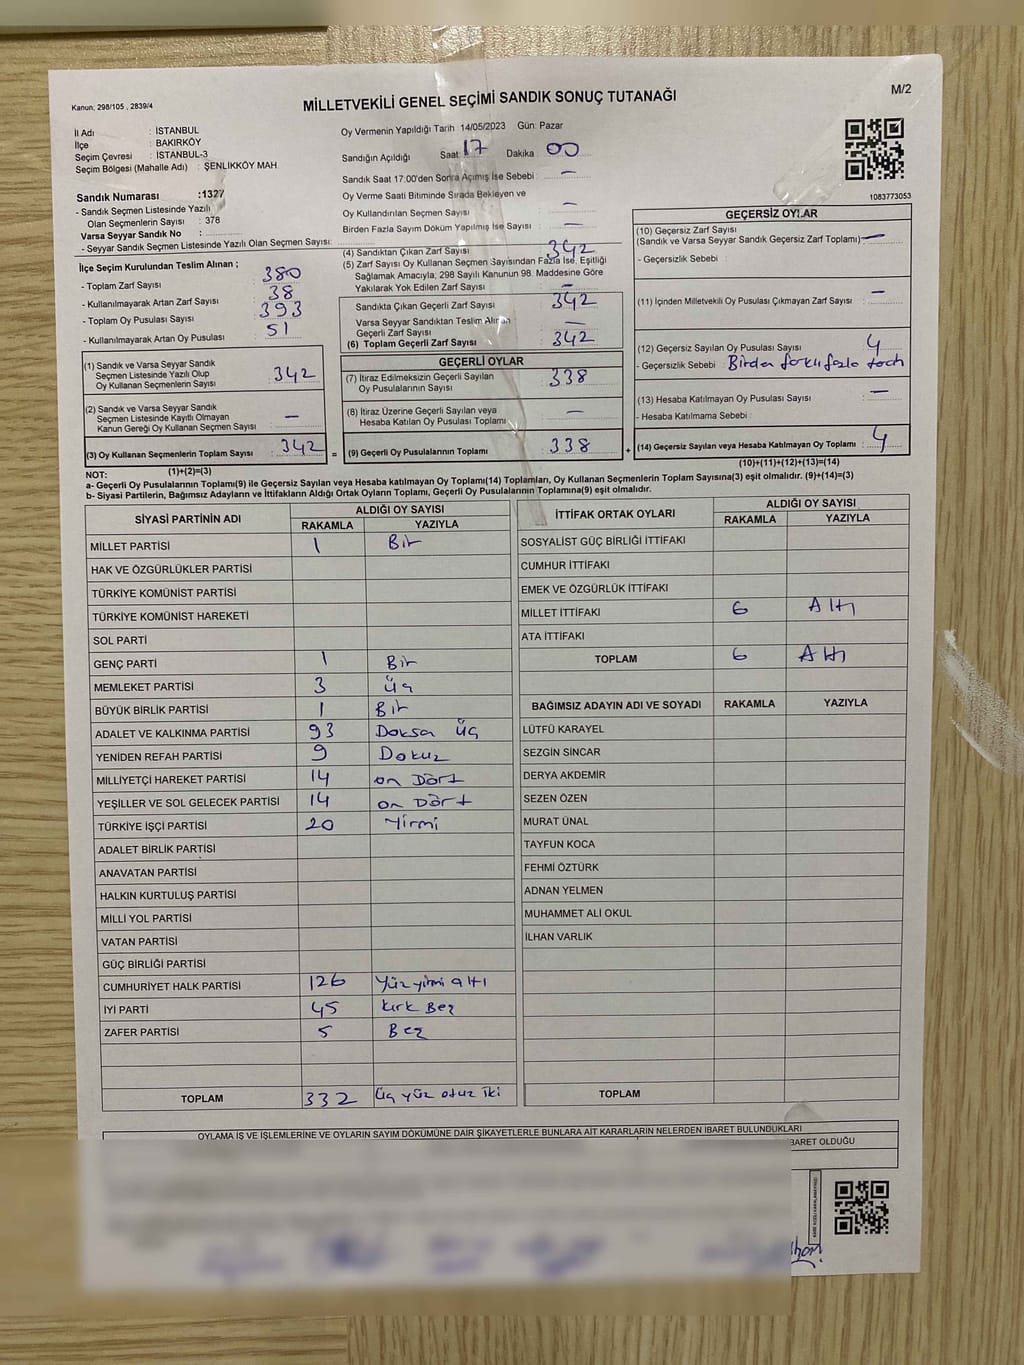 Kanun; 298/105 , 2839/4
MİLLETVEKİLİ GENEL SEÇİMİ SANDIK SONUÇ TUTANAĞI
M/2
İl Adı : İSTANBUL
İlçe : BAKIRKÖY
Seçim Çevresi : İSTANBUL-3
Seçim Bölgesi (Mahalle Adı) : ŞENLİKKÖY MAH.
Sandık Numarası :1327
- Sandık Seçmen Listesinde Yazılı
Olan Seçmenlerin Sayısı : 378
Varsa Seyyar Sandık No :
- Seyyar Sandık Seçmen Listesinde Yazılı Olan Seçmen Sayısı:
Oy Vermenin Yapıldığı Tarih 14/05/2023 Gün: Pazar
Sandığın Açıldığı Saat 17 Dakika 00
Sandık Saat 17:00'den Sonra Açılmış İse Sebebi : —
Oy Verme Saati Bitiminde Sırada Bekleyen ve
Oy Kullandırılan Seçmen Sayısı : —
Birden Fazla Sayım Döküm Yapılmış İse Sayısı : —
1083773053
İlçe Seçim Kurulundan Teslim Alınan ;
- Toplam Zarf Sayısı : 380
- Kullanılmayarak Artan Zarf Sayısı : 38
- Toplam Oy Pusulası Sayısı : 393
- Kullanılmayarak Artan Oy Pusulası : 51
(1) Sandık ve Varsa Seyyar Sandık
Seçmen Listesinde Yazılı Olup
Oy Kullanan Seçmenlerin Sayısı : 342
(2) Sandık ve Varsa Seyyar Sandık
Seçmen Listesinde Kayıtlı Olmayan
Kanun Gereği Oy Kullanan Seçmen Sayısı : —
(3) Oy Kullanan Seçmenlerin Toplam Sayısı : 342
(1)+(2)=(3)
(4) Sandıktan Çıkan Zarf Sayısı : 342
(5) Zarf Sayısı Oy Kullanan Seçmen Sayısından Fazla İse, Eşitliği
Sağlamak Amacıyla, 298 Sayılı Kanunun 98. Maddesine Göre
Yakılarak Yok Edilen Zarf Sayısı : —
Sandıkta Çıkan Geçerli Zarf Sayısı : 342
Varsa Seyyar Sandıktan Teslim Alınan
Geçerli Zarf Sayısı : —
(6) Toplam Geçerli Zarf Sayısı : 342
GEÇERLİ OYLAR
(7) İtiraz Edilmeksizin Geçerli Sayılan
Oy Pusulalarının Sayısı : 338
(8) İtiraz Üzerine Geçerli Sayılan veya
Hesaba Katılan Oy Pusulası Toplamı : —
= (9) Geçerli Oy Pusulalarının Toplamı : 338 +
GEÇERSİZ OYLAR
(10) Geçersiz Zarf Sayısı
(Sandık ve Varsa Seyyar Sandık Geçersiz Zarf Toplamı) : —
- Geçersizlik Sebebi :
(11) İçinden Milletvekili Oy Pusulası Çıkmayan Zarf Sayısı : —
(12) Geçersiz Sayılan Oy Pusulası Sayısı : 4
- Geçersizlik Sebebi :
(13) Hesaba Katılmayan Oy Pusulası Sayısı : —
- Hesaba Katılmama Sebebi :
(14) Geçersiz Sayılan veya Hesaba Katılmayan Oy Toplamı : 4
(10)+(11)+(12)+(13)=(14)
NOT:
a- Geçerli Oy Pusulalarının Toplamı(9) ile Geçersiz Sayılan veya Hesaba Katılmayan Oy Toplamı(14) Toplamları, Oy Kullanan Seçmenlerin Toplam Sayısına(3) eşit olmalıdır. (9)+(14)=(3)
b- Siyasi Partilerin, Bağımsız Adayların ve İttifakların Aldığı Ortak Oyların Toplamı, Geçerli Oy Pusulalarının Toplamına(9) eşit olmalıdır.
SİYASİ PARTİNİN ADI ALDIĞI OY SAYISI
RAKAMLA YAZIYLA
MİLLET PARTİSİ 1 Bir
HAK VE ÖZGÜRLÜKLER PARTİSİ
TÜRKİYE KOMÜNİST PARTİSİ
TÜRKİYE KOMÜNİST HAREKETİ
SOL PARTİ
GENÇ PARTİ 1 Bir
MEMLEKET PARTİSİ 3 Üç
BÜYÜK BİRLİK PARTİSİ 1 Bir
ADALET VE KALKINMA PARTİSİ 93 Doksa Üç
YENİDEN REFAH PARTİSİ 9 Dokuz
MİLLİYETÇİ HAREKET PARTİSİ 14 on Dört
YEŞİLLER VE SOL GELECEK PARTİSİ 14 on Dört
TÜRKİYE İŞÇİ PARTİSİ 20 Yirmi
ADALET BİRLİK PARTİSİ
ANAVATAN PARTİSİ
HALKIN KURTULUŞ PARTİSİ
MİLLİ YOL PARTİSİ
VATAN PARTİSİ
GÜÇ BİRLİĞİ PARTİSİ
CUMHURİYET HALK PARTİSİ 126 Yüz yirmi altı
İYİ PARTİ 45 Kırk Beş
ZAFER PARTİSİ 5 Beş
TOPLAM 332 Üç yüz otuz iki
İTTİFAK ORTAK OYLARI ALDIĞI OY SAYISI
RAKAMLA YAZIYLA
SOSYALİST GÜÇ BİRLİĞİ İTTİFAKI
CUMHUR İTTİFAKI
EMEK VE ÖZGÜRLÜK İTTİFAKI
MİLLET İTTİFAKI 6 Altı
ATA İTTİFAKI
TOPLAM 6 Altı
BAĞIMSIZ ADAYIN ADI VE SOYADI RAKAMLA YAZIYLA
LÜTFÜ KARAYEL
SEZGİN SİNCAR
DERYA AKDEMİR
SEZEN ÖZEN
MURAT ÜNAL
TAYFUN KOCA
FEHMİ ÖZTÜRK
ADNAN YELMEN
MUHAMMET ALİ OKUL
İLHAN VARLIK
TOPLAM
OYLAMA İŞ VE İŞLEMLERİNE VE OYLARIN SAYIM DÖKÜMÜNE DAİR ŞİKAYETLERLE BUNLARA AİT KARARLARIN NELERDEN İBARET BULUNDUKLARI
BARET OLDUĞU